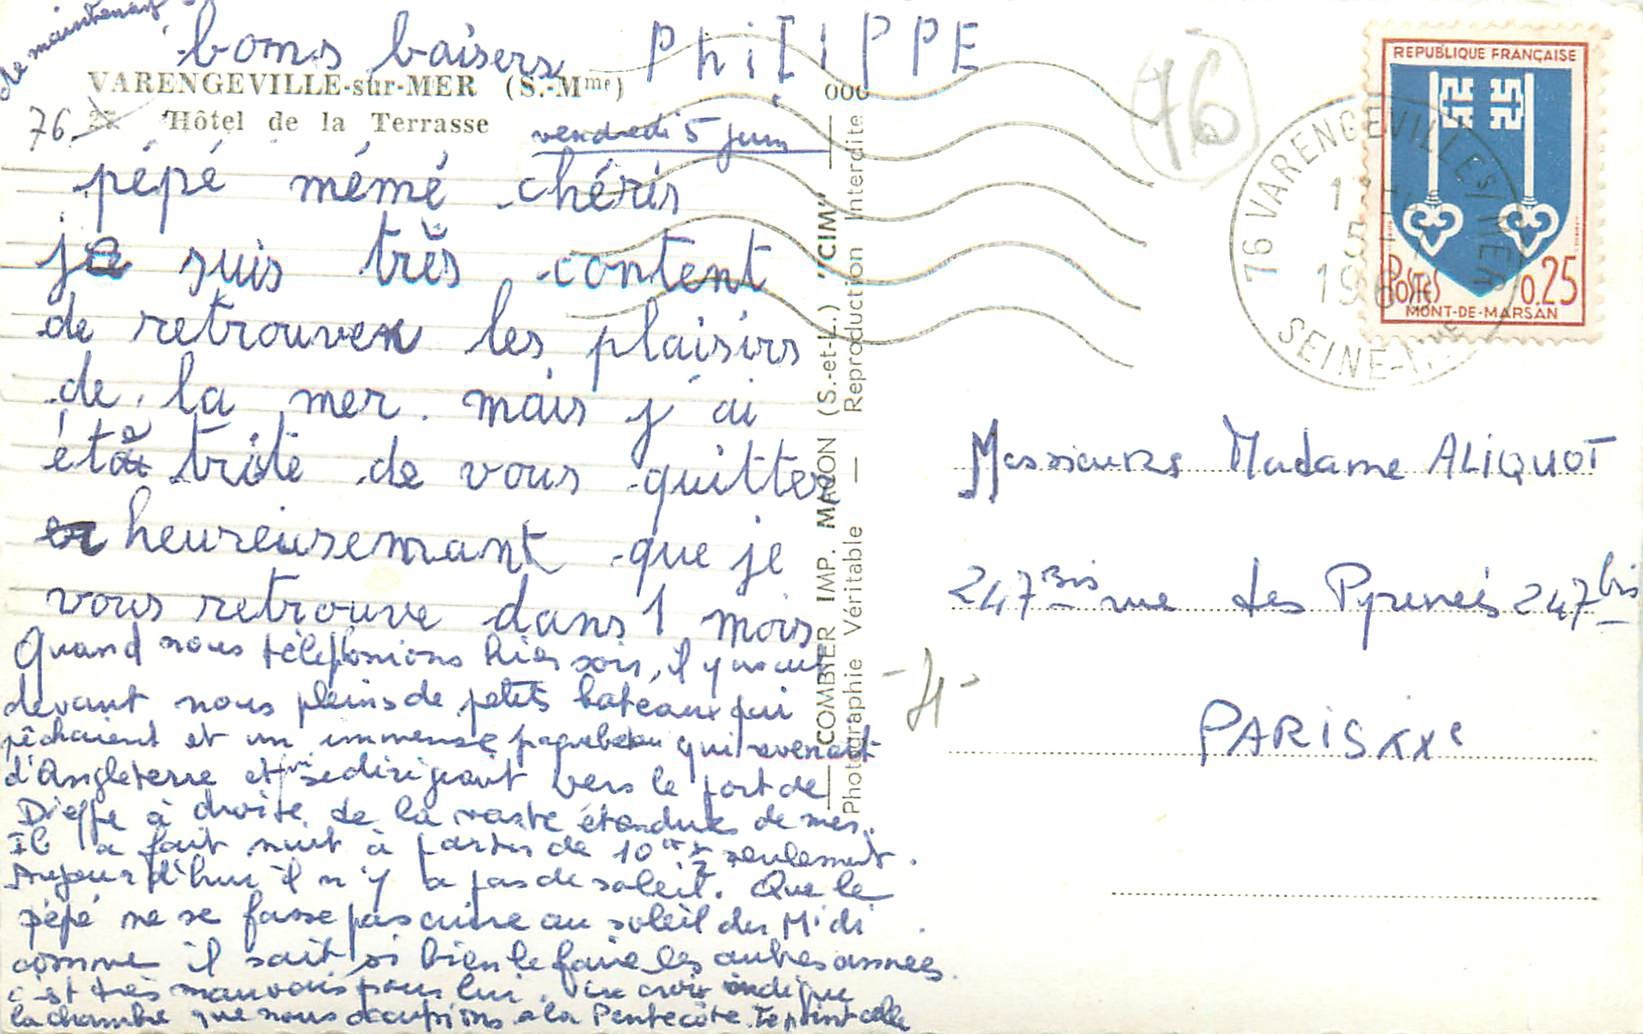 de maintenant
bons baisers PhiLIPPE
VARENGEVILLE-sur-MER (S.-Mme)
76. Hôtel de la Terrasse
vendredi 5 juin
pépé mémé chéris
je suis très content
de retrouver les plaisirs
de la mer. mais j'ai
été triste de vous quitter
heureusemant que je
vous retrouve dans 1 mois
Quand nous téléphonions hier soir, il y avait
devant nous pleins de petits bateaux qui
pêchaient et un immense paquebeau qui revenait
d'Angleterre et qui se dirigeait vers le port de
Dieppe à droite de la vaste étendue de mer.
Il a fait nuit à partir de 10 seulement.
Aujourd'hui il n'y a pas de soleil. Que le
pépé ne se fasse pas cuire au soleil du Midi
comme il sait si bien le faire les autres années.
c'est très mauvais pour lui. Une croix indique
la chambre que nous occupions a la Pentecôte. Le point celle
COMBIER IMP. MACON (S.-et-L.) "CIM"
Photographie Véritable — Reproduction Interdite
000
76
76 VARENGEVILLE S/ MER
5
SEINE-Mme
REPUBLIQUE FRANÇAISE
POSTES 0.25
MONT-DE-MARSAN
Messieurs Madame ALIQUOT
247 Bis rue des Pyrenées 247 bis
- H -
PARIS XXe